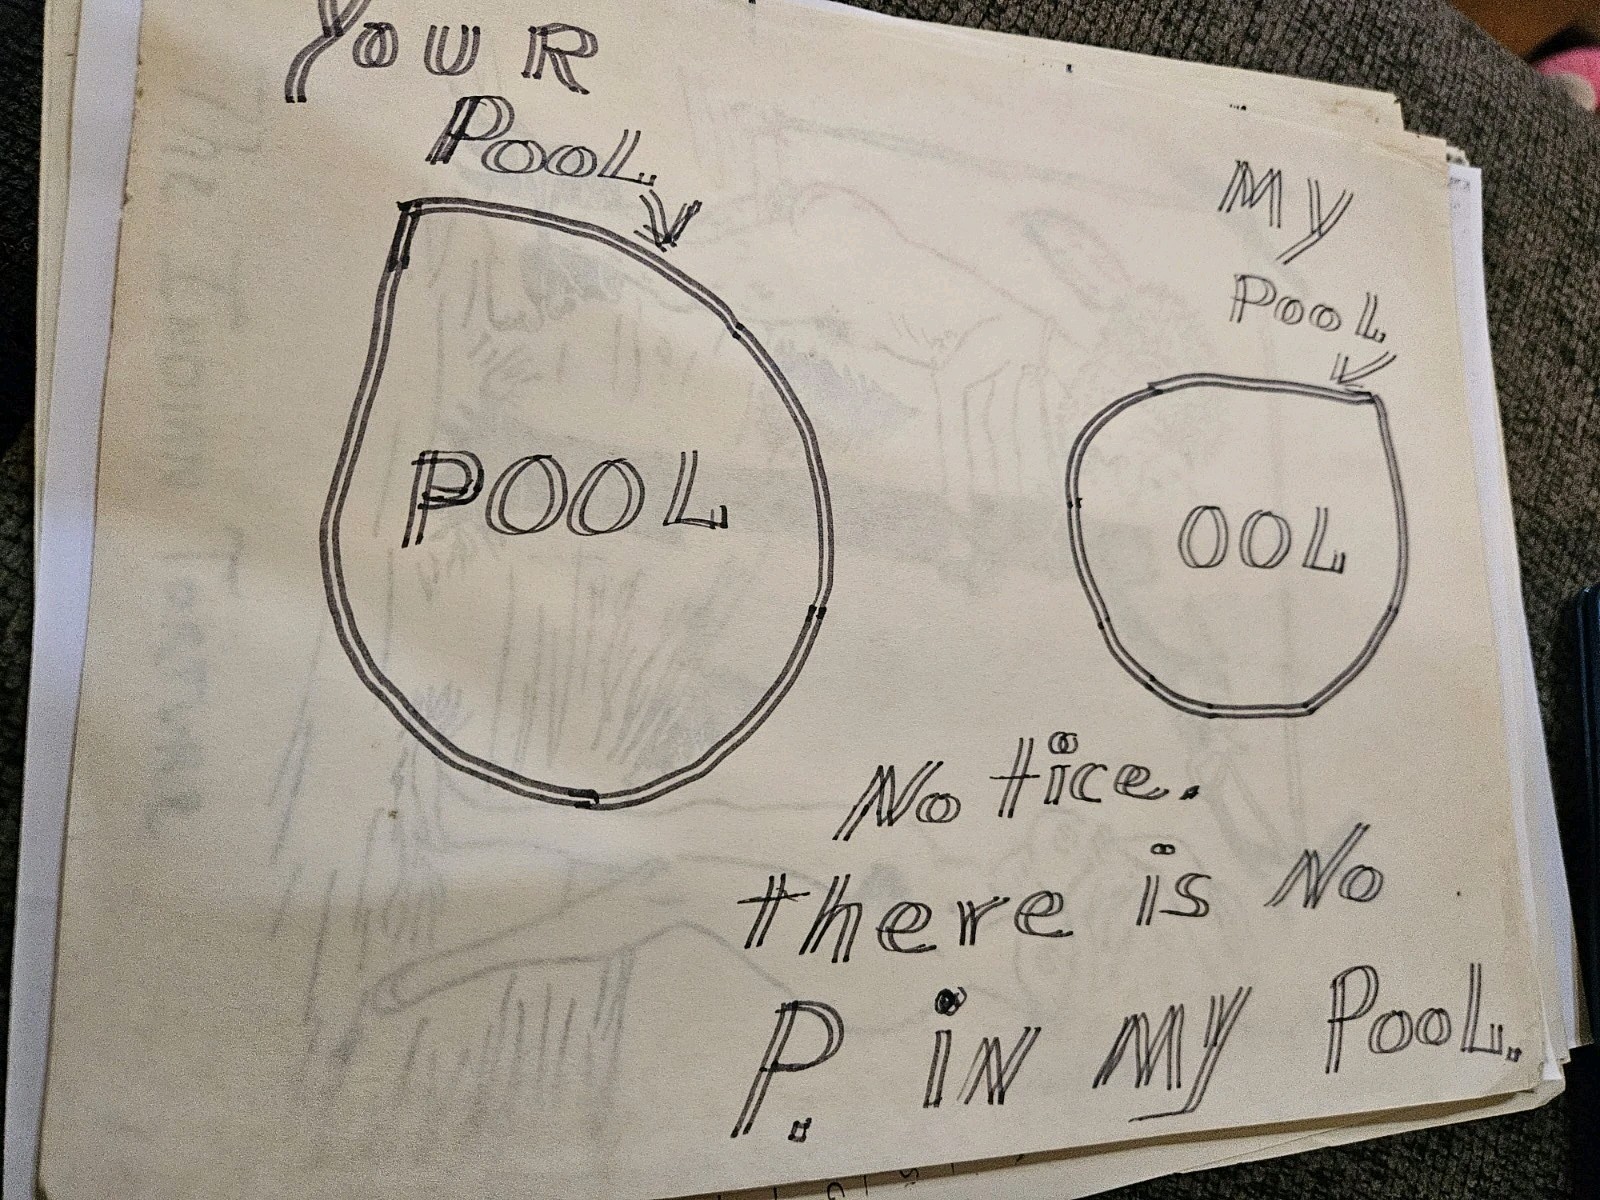 YouR
PooL.
POOL
My
PooL
OOL
Notice.
there is No
P. iN My PooL.